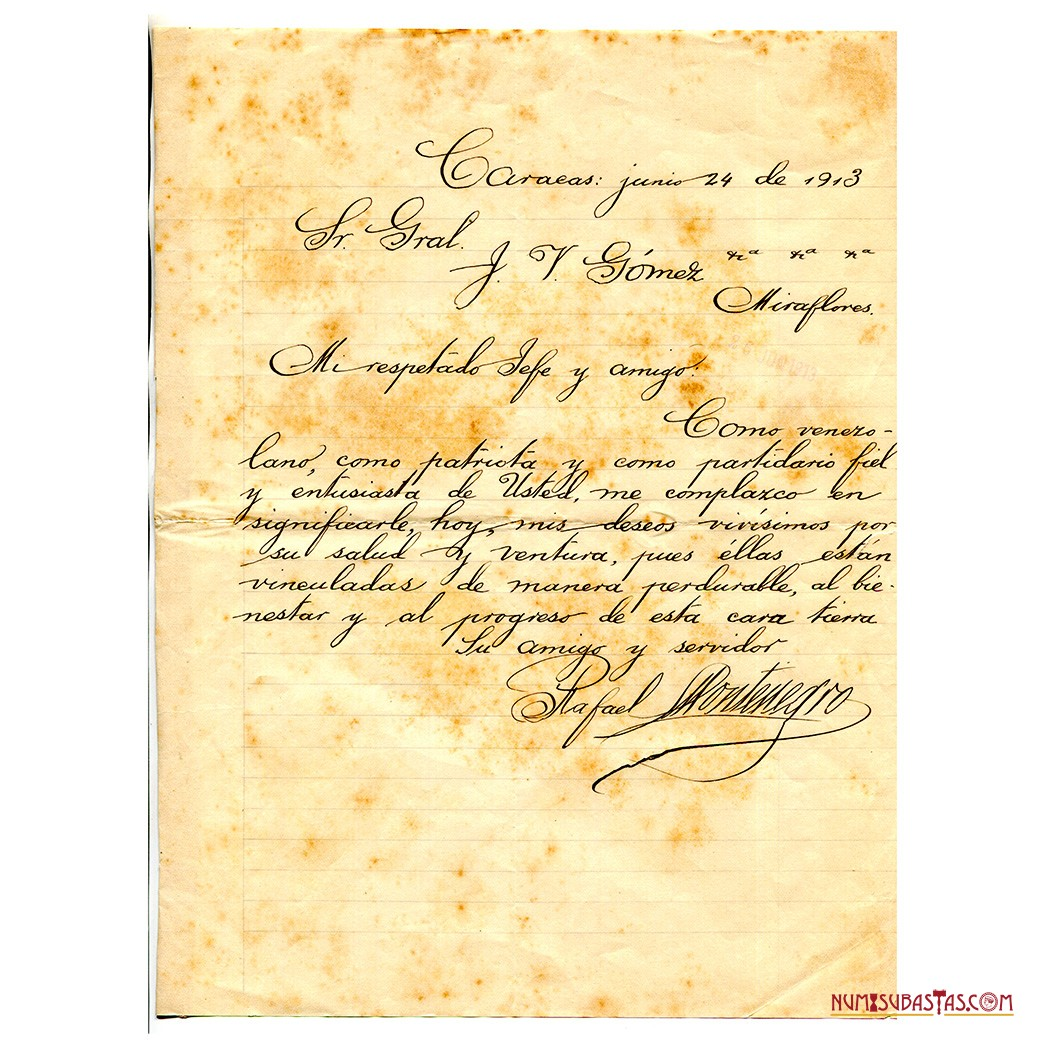 Caracas: junio 24 de 1913
Sr. Gral.
J. V. Gómez &ª &ª &ª
Miraflores.
Mi respetado Jefe y amigo:
Como venezo-
lano, como patriota y como partidario fiel
y entusiasta de Usted, me complazco en
significarle, hoy, mis deseos vivísimos por
su salud y ventura, pues éllas están
vinculadas de manera perdurable, al bie-
nestar y al progreso de esta cara tierra
Su amigo y servidor
Rafael Montenegro
NUMISUBASTAS.COM